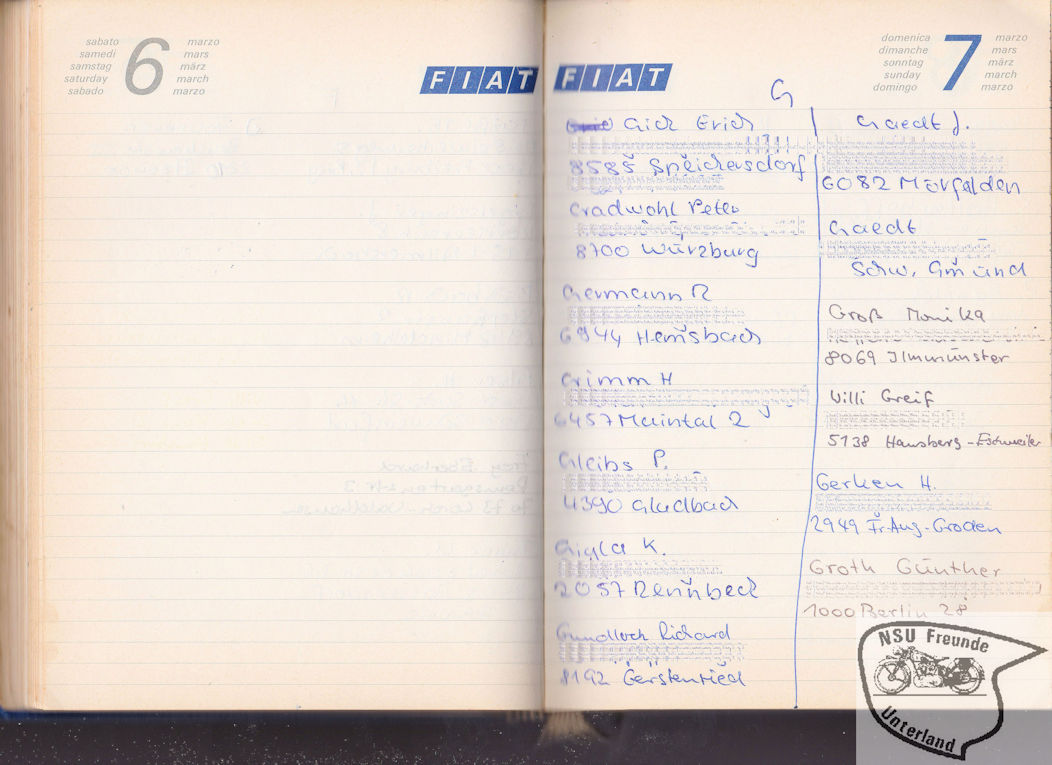 sabato
samedi
samstag
saturday
sabado
6
marzo
mars
märz
march
marzo
FIAT
FIAT
domenica
dimanche
sonntag
sunday
domingo
7
marzo
mars
märz
march
marzo
G
Gick Erich
8585 Speichersdorf
Gradwohl Peter
8700 Würzburg
Germann R
6944 Hemsbach
Grimm H
6457 Maintal 2
Gleibs P.
4390 Gladbach
Gigla K.
2057 Reinbeck
Gundloch Richard
8192 Gerstenried
Gaedt J.
6082 Mörfelden
Gaedt
Schw. Gmünd
Groß Monika
8069 Ilmmünster
Willi Greif
5138 Hansberg-Eschweiler
Gerken H.
2949 Fr.-Aug.-Groden
Groth Günther
1000 Berlin 28
NSU Freunde
Unterland